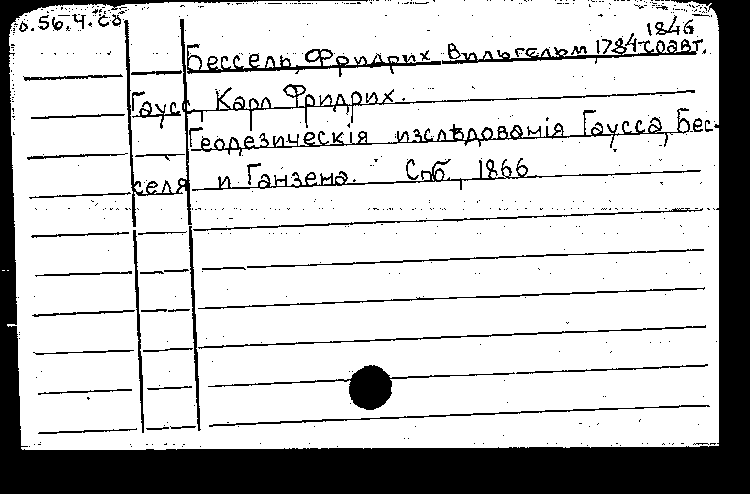 1846
Бессель, Фридрих Вильгельм, 1784- соавт.
Гаусс, Карл Фридрих.
Геодезическія изслѣдованія Гаусса, Бес-
селя и Ганзена. Спб., 1866